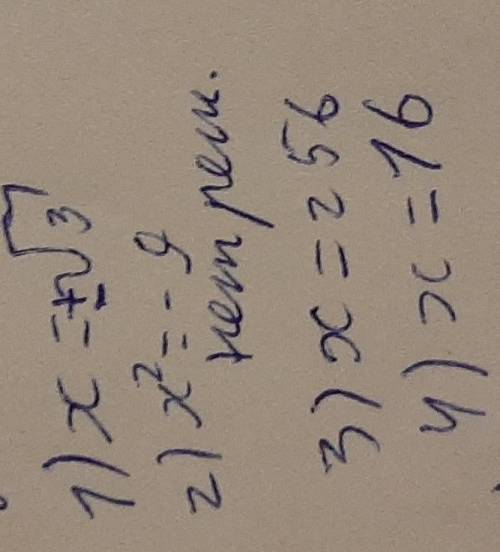 1) x = ±√3
2) x² = -9
нет реш.
3) x = 256
4) x = 16